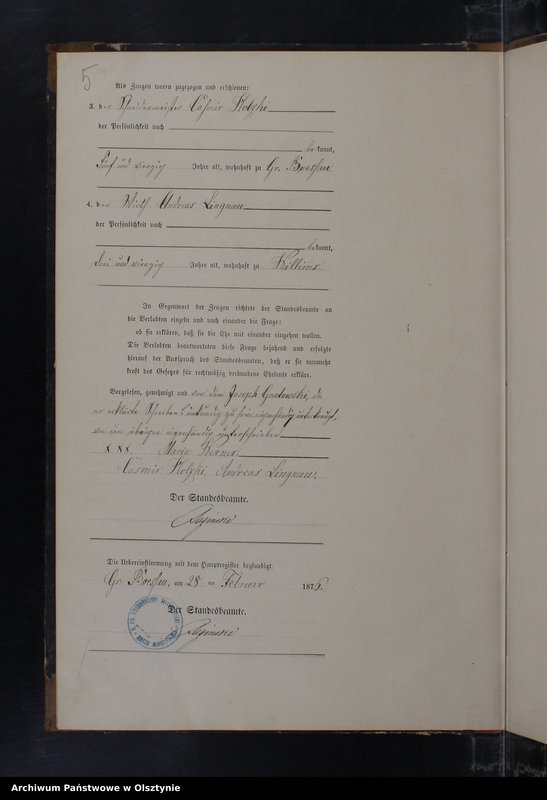 5
Als Zeugen waren zugezogen und erschienen:
3. der Schneidermeister Casmir Kolzki
der Persönlichkeit nach
bekannt,
fünf und vierzig Jahre alt, wohnhaft zu Gr. Boessau
4. der Wirth Andreas Lingnau
der Persönlichkeit nach
bekannt,
drei und vierzig Jahre alt, wohnhaft zu Killims
In Gegenwart der Zeugen richtete der Standesbeamte an
die Verlobten einzeln und nach einander die Frage:
ob sie erklären, daß sie die Ehe mit einander eingehen wollen.
Die Verlobten beantworteten diese Frage bejahend und erfolgte
hierauf der Ausspruch des Standesbeamten, daß er sie nunmehr
kraft des Gesetzes für rechtmäßig verbundene Eheleute erkläre.
Vorgelesen, genehmigt und von dem Joseph da
er erklärte Schreibens unkundig zu sein eigenhändig unterkreuzt,
von den übrigen eigenhändig unterschrieben
X XX Maria
Casmir Kolzki Andreas Lingnau.
Der Standesbeamte.
Die Uebereinstimmung mit dem Hauptregister beglaubigt.
Gr. Boessau, am 28 ten Februar 1876.
Der Standesbeamte.
Archiwum Państwowe w Olsztynie